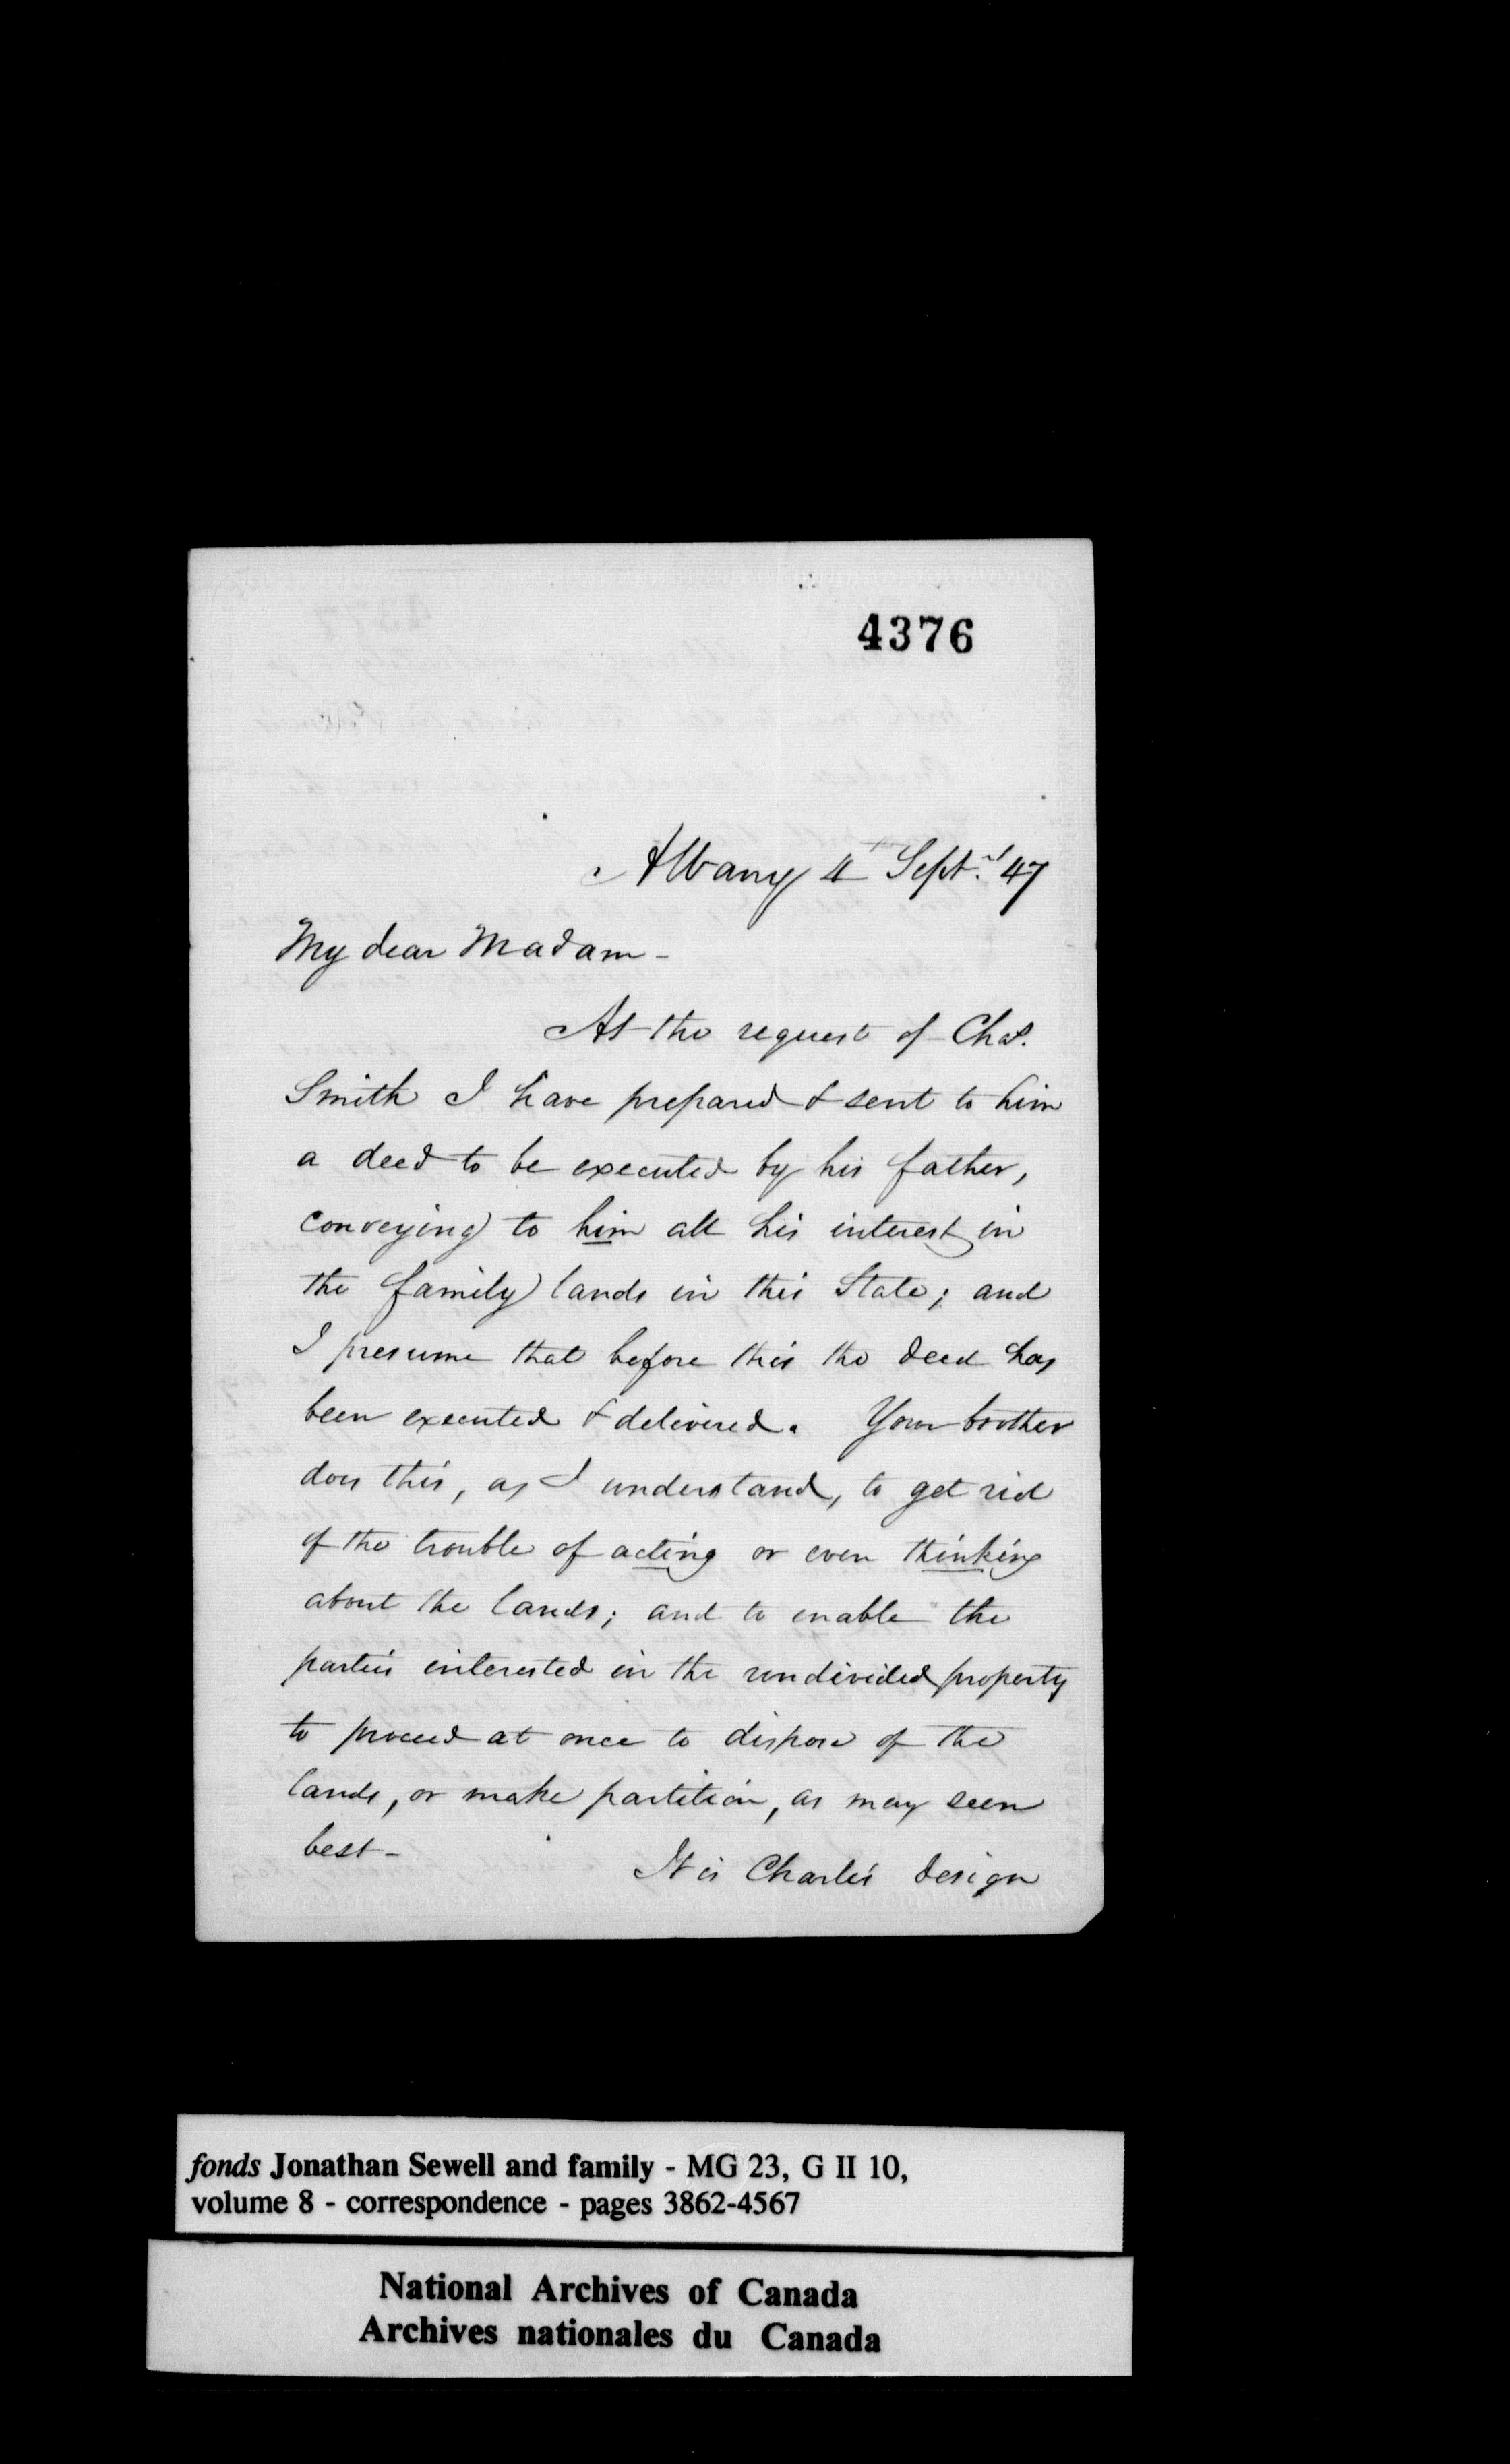 4376
Albany 4th Septr 47
My dear Madam -
At the request of Chas.
Smith I have prepared & sent to him
a deed to be executed by his father,
conveying to him all his interest in
the family lands in this State; and
I presume that before this the deed has
been executed & delivered. Your brother
does this, as I understand, to get rid
of the trouble of acting or even thinking
about the lands; and to enable the
parties interested in the undivided property
to proceed at once to dispose of the
lands, or make partition, as may seem
best -
It is Charles' design
fonds Jonathan Sewell and family - MG 23, G II 10,
volume 8 - correspondence - pages 3862-4567
National Archives of Canada
Archives nationales du Canada